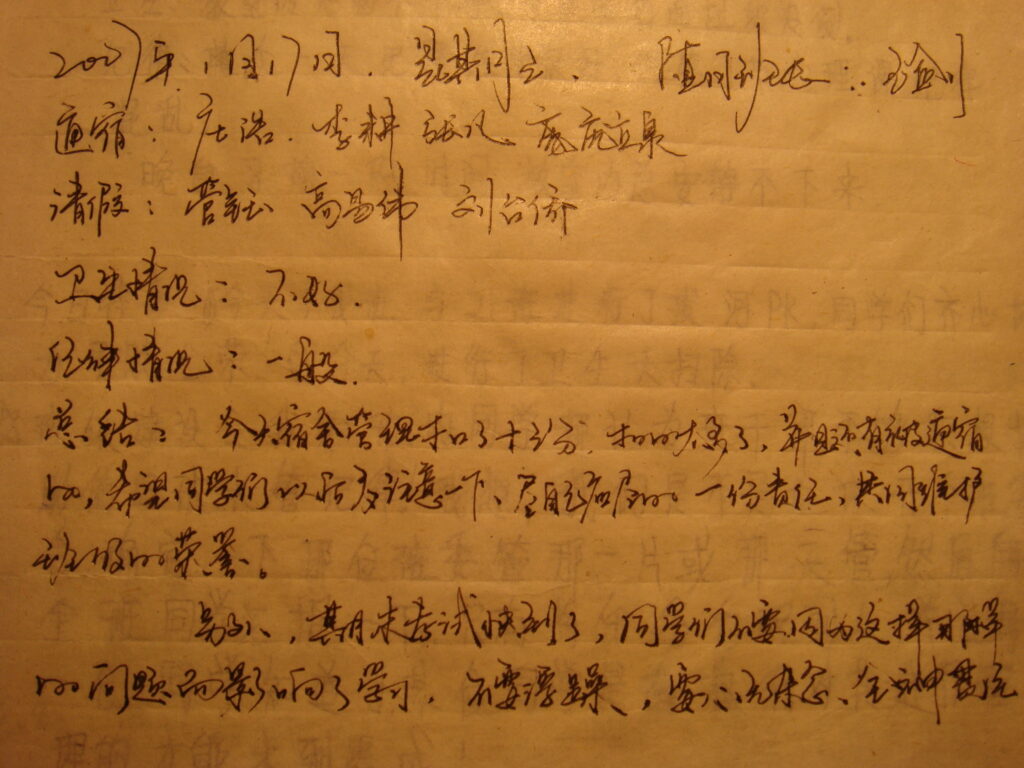 2007年1月17日. 星期三. 值周班长:
通宿: 庄浩. 李耕 张凡
请假: 管钰 高昌伟 刘台侨
卫生情况: 不好.
纪律情况: 一般.
总结: 今天宿舍管理扣了十多分, 扣的太多了, 并且还有被通宿
的, 希望同学们以后多注意一下、尽自己应尽的一份责任, 共同维护
班级的荣誉。
另外, 期末考试快到了, 同学们不要因为这样那样
的问题而影响了学习, 不要浮躁, 要心无杂念、全